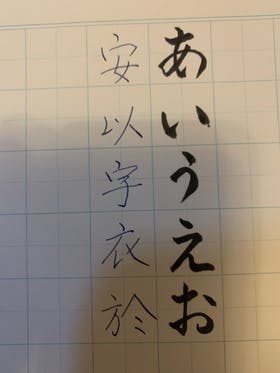 あいうえお
安以字衣於